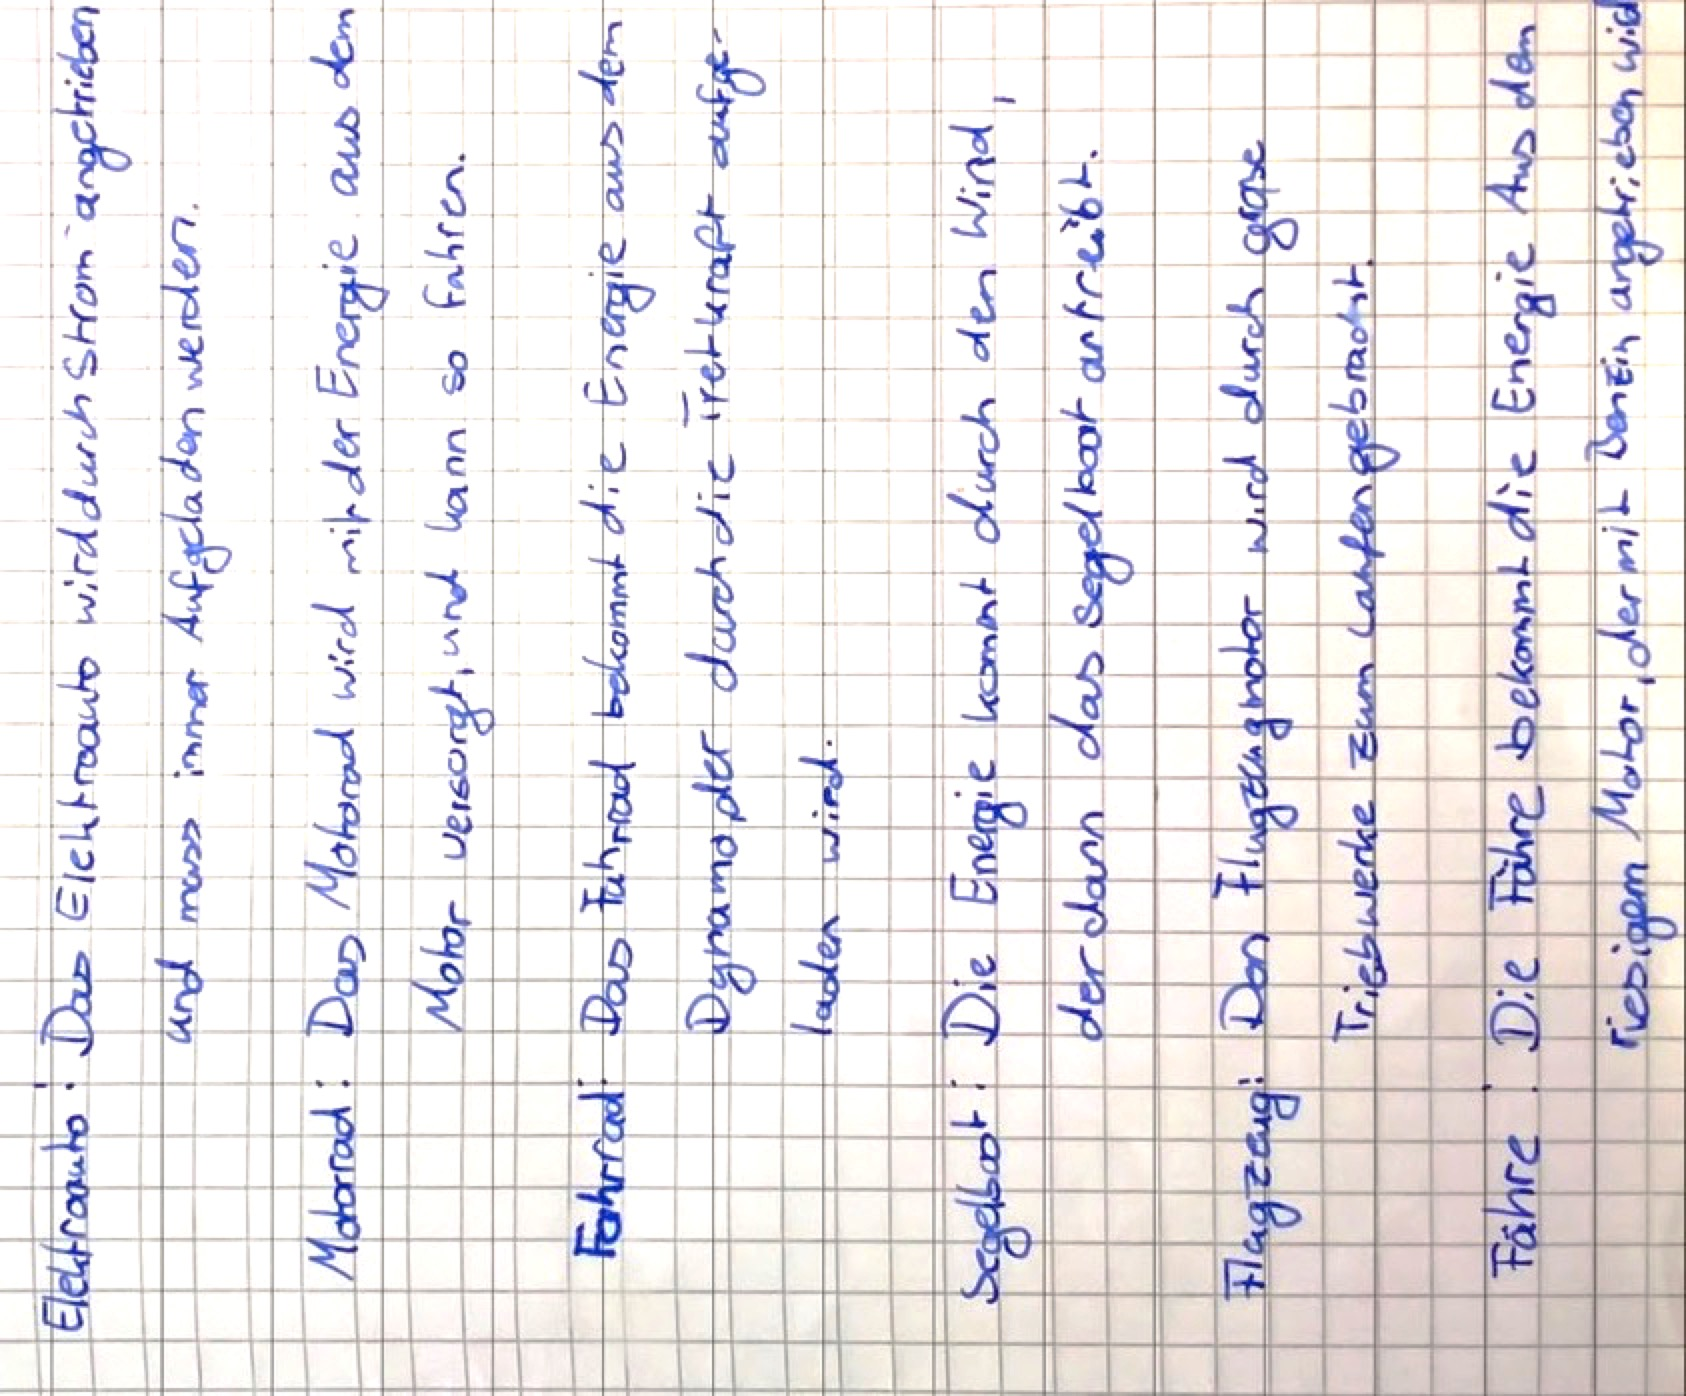 Elektroauto: Das Elektroauto wird durch Strom angetrieben
und muss immer Aufgeladen werden.
Motorrad: Das Motorrad wird mit der Energie aus dem
Motor versorgt, und kann so fahren.
Fahrrad: Das Fahrrad bekommt die Energie aus dem
Dynamo, der durch die Tretkraft aufge-
laden wird.
Segelboot: Die Energie kommt durch den Wind,
der dann das Segelboot antreibt.
Flugzeug: Den Flugzeugmotor wird durch grosse
Triebwerke zum Laufen gebracht.
Fähre: Die Fähre bekommt die Energie Aus dem
riesigem Motor, der mit Benzin angetrieben wird